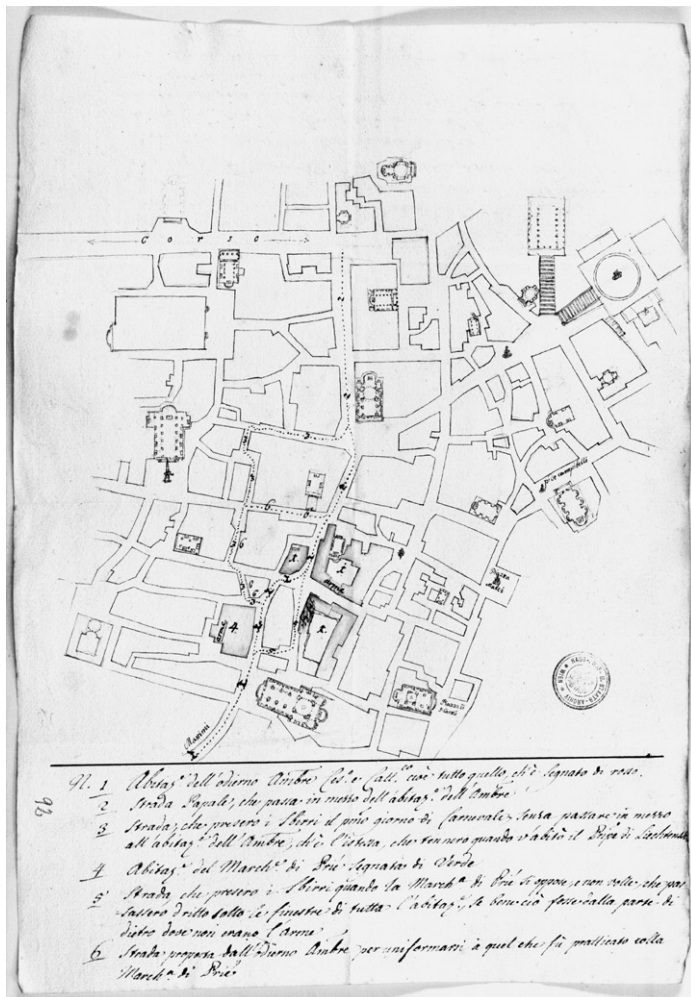 Corso
P. Campitelli
Piazza
Mattei
Argent.
Piazza di
Massimi
N. 1 Abitaz.e dell'odierno Ambre Ces.o e Catt.co cioè tutto quello, ch'è segnato di rosso.
2 Strada Papale, che passa in mezzo dell'abitaz.e dell'Ambre
3 Strada, che presero i Sbirri il p.mo giorno di Carnevale, senza passare in mezzo
all'abitaz.e dell'Ambre, ch'è l'istessa, che tennero quando v'abitò il Pnpe di
4 Abitaz.e del March.e di Prié segnata di Verde
5 Strada, che presero i Sbirri quando la March.a di Prié si oppose, e non volle, che pas
sassero dritto sotto le finestre di tutta l'abitaz.e, se bene ciò fosse dalla parte di
dietro dove non erano l'Armi
6 Strada proposta dall'odierno Ambre per uniformarsi à quel che fù pratticato colla
March.a di Prié
92